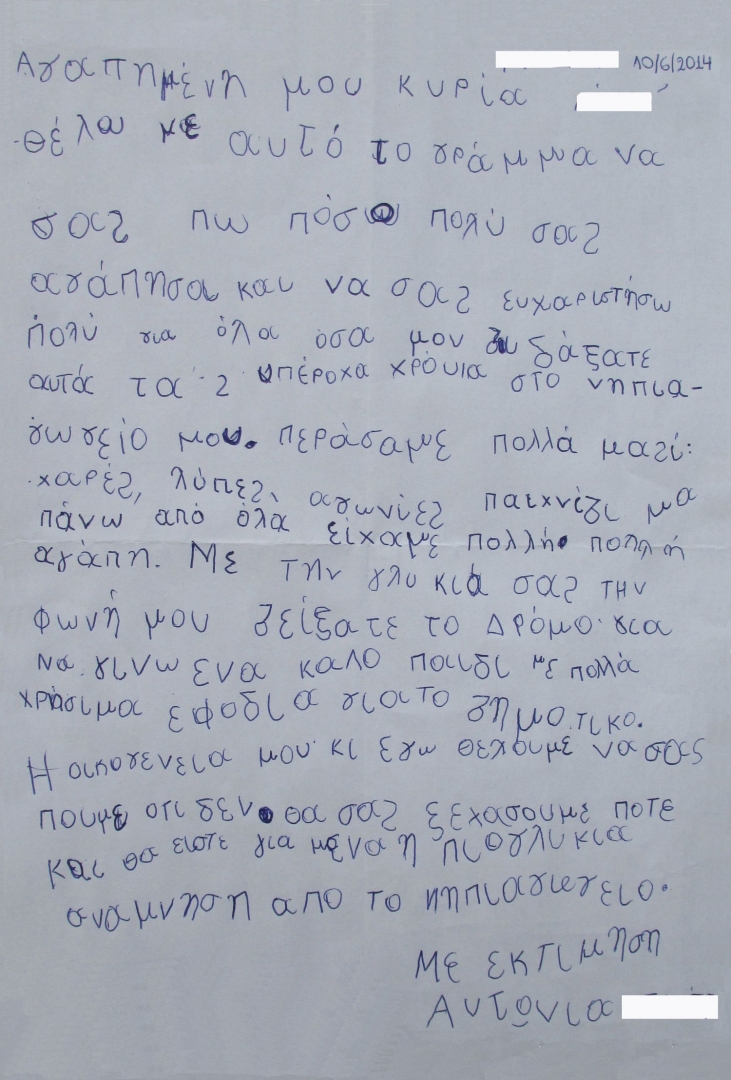 10/6/2014
Αγαπημένη μου κυρία
θέλω με αυτό το γράμμα να
σας πω πόσο πολύ σας
αγάπησα και να σας ευχαριστήσω
πολύ για όλα όσα μου διδάξατε
αυτά τα 2 υπέροχα χρόνια στο νηπια-
γωγείο μου. περάσαμε πολλά μαζί:
χαρές, λύπες, αγωνίες παιχνίδι μα
πάνω από όλα είχαμε πολλή πολλή
αγάπη. Με την γλυκιά σας την
φωνή μου δείξατε το Δρόμο για
να γινω ενα καλο παιδι με πολλά
χρήσιμα εφοδια για το δημοτικο.
Η οικογενεια μου κι εγω θεχουμε να σας
πουμε οτι δεν θα σας ξεχασουμε ποτε
και θα ειστε για μενα η πιο γλυκια
αναμνηση απο το νηπιαγωγειο.
Με εκτιμηση
Αντωνια